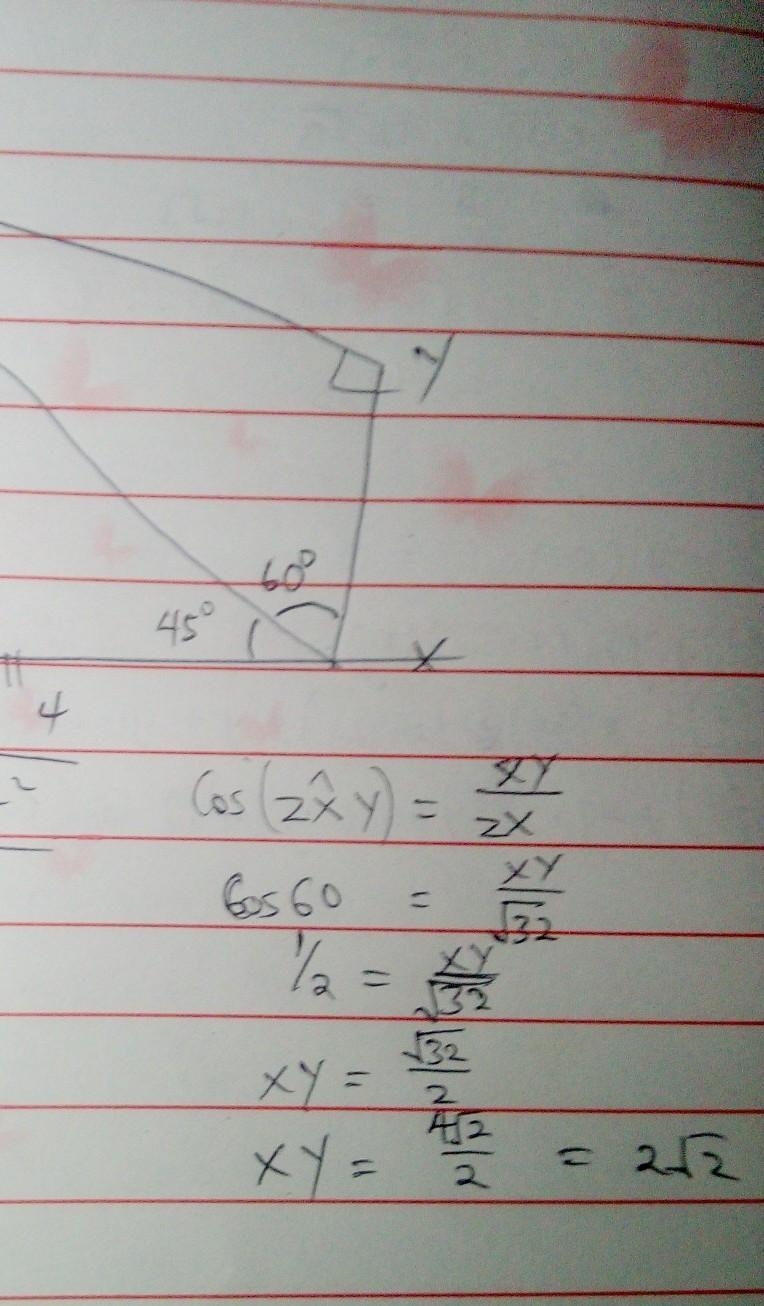 Y
60°
45°
X
4
2
Cos(ZX̂Y) = XY/ZX
Cos60 = XY/√32
1/2 = XY/√32
XY = √32/2
XY = 4√2/2 = 2√2